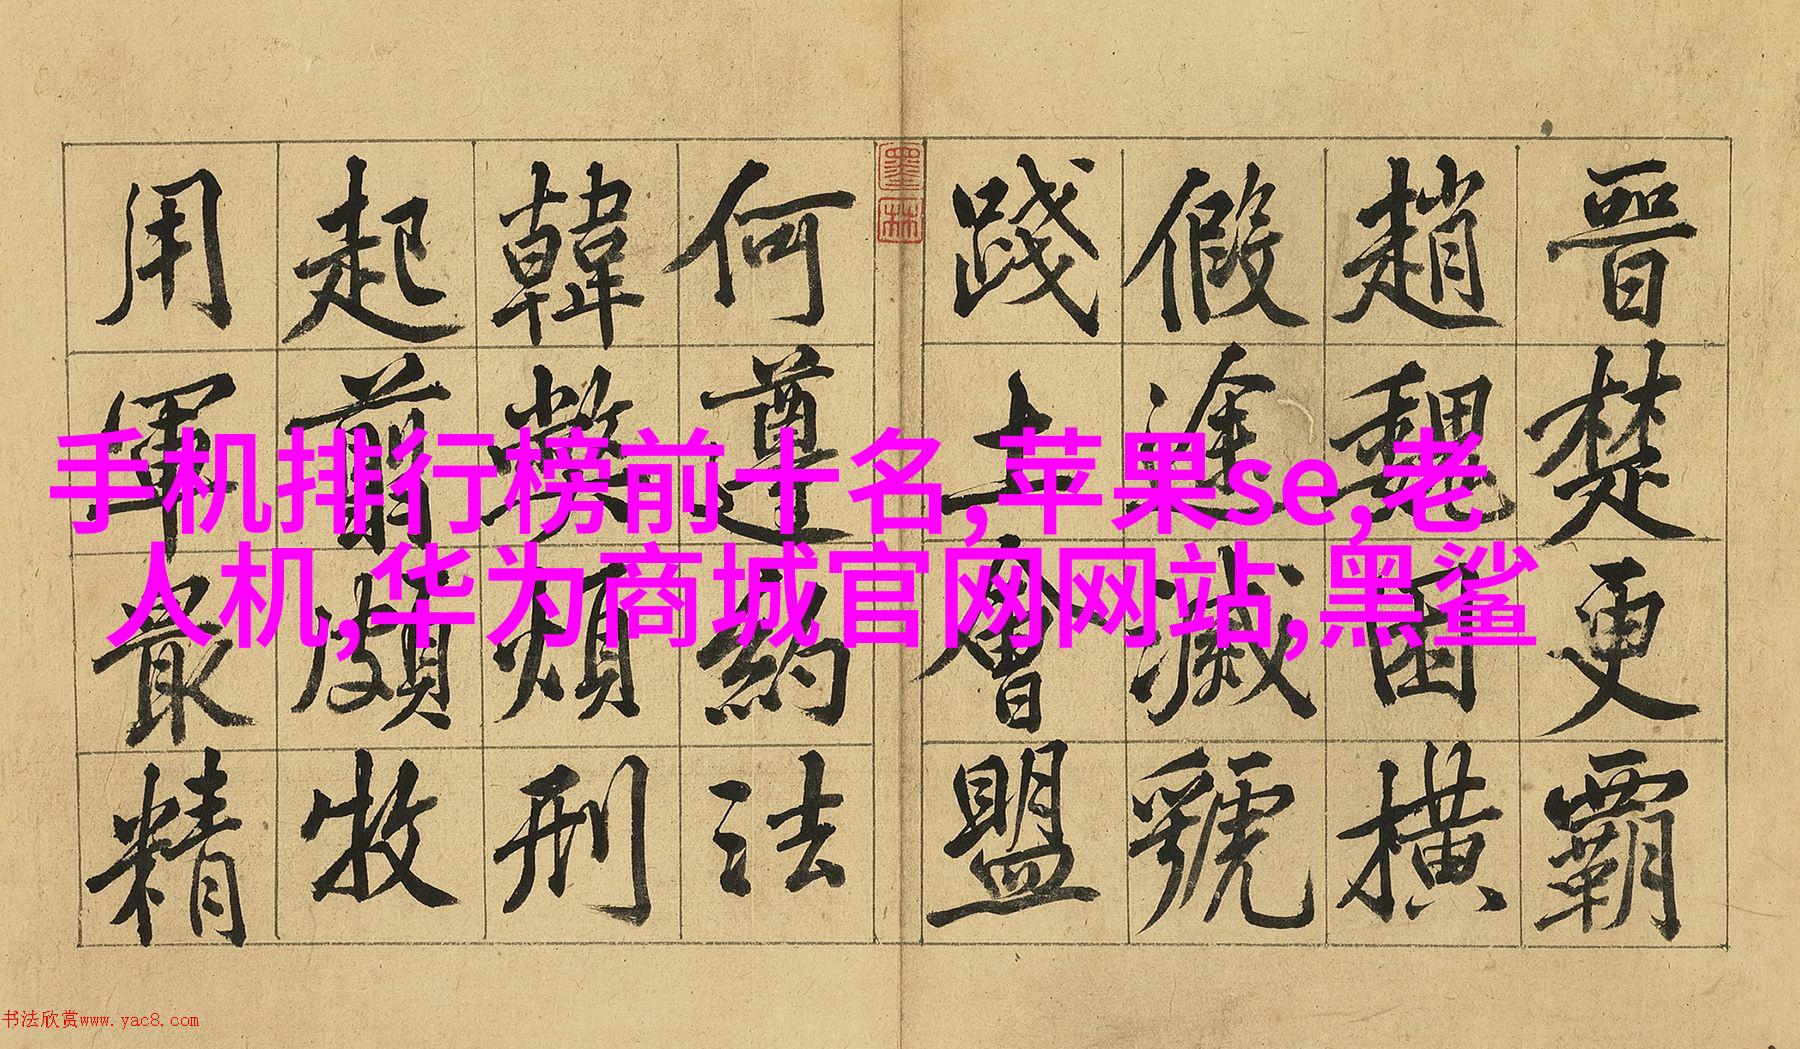 晉楚更霸
趙魏困橫
假途滅虢
踐土會盟
墨林
何遵約法
韓弊煩刑
起翦頗牧
用軍最精
手机排行榜前十名,苹果se,老
人机,华为商城官网网站,黑鲨
书法欣赏www.yac8.com